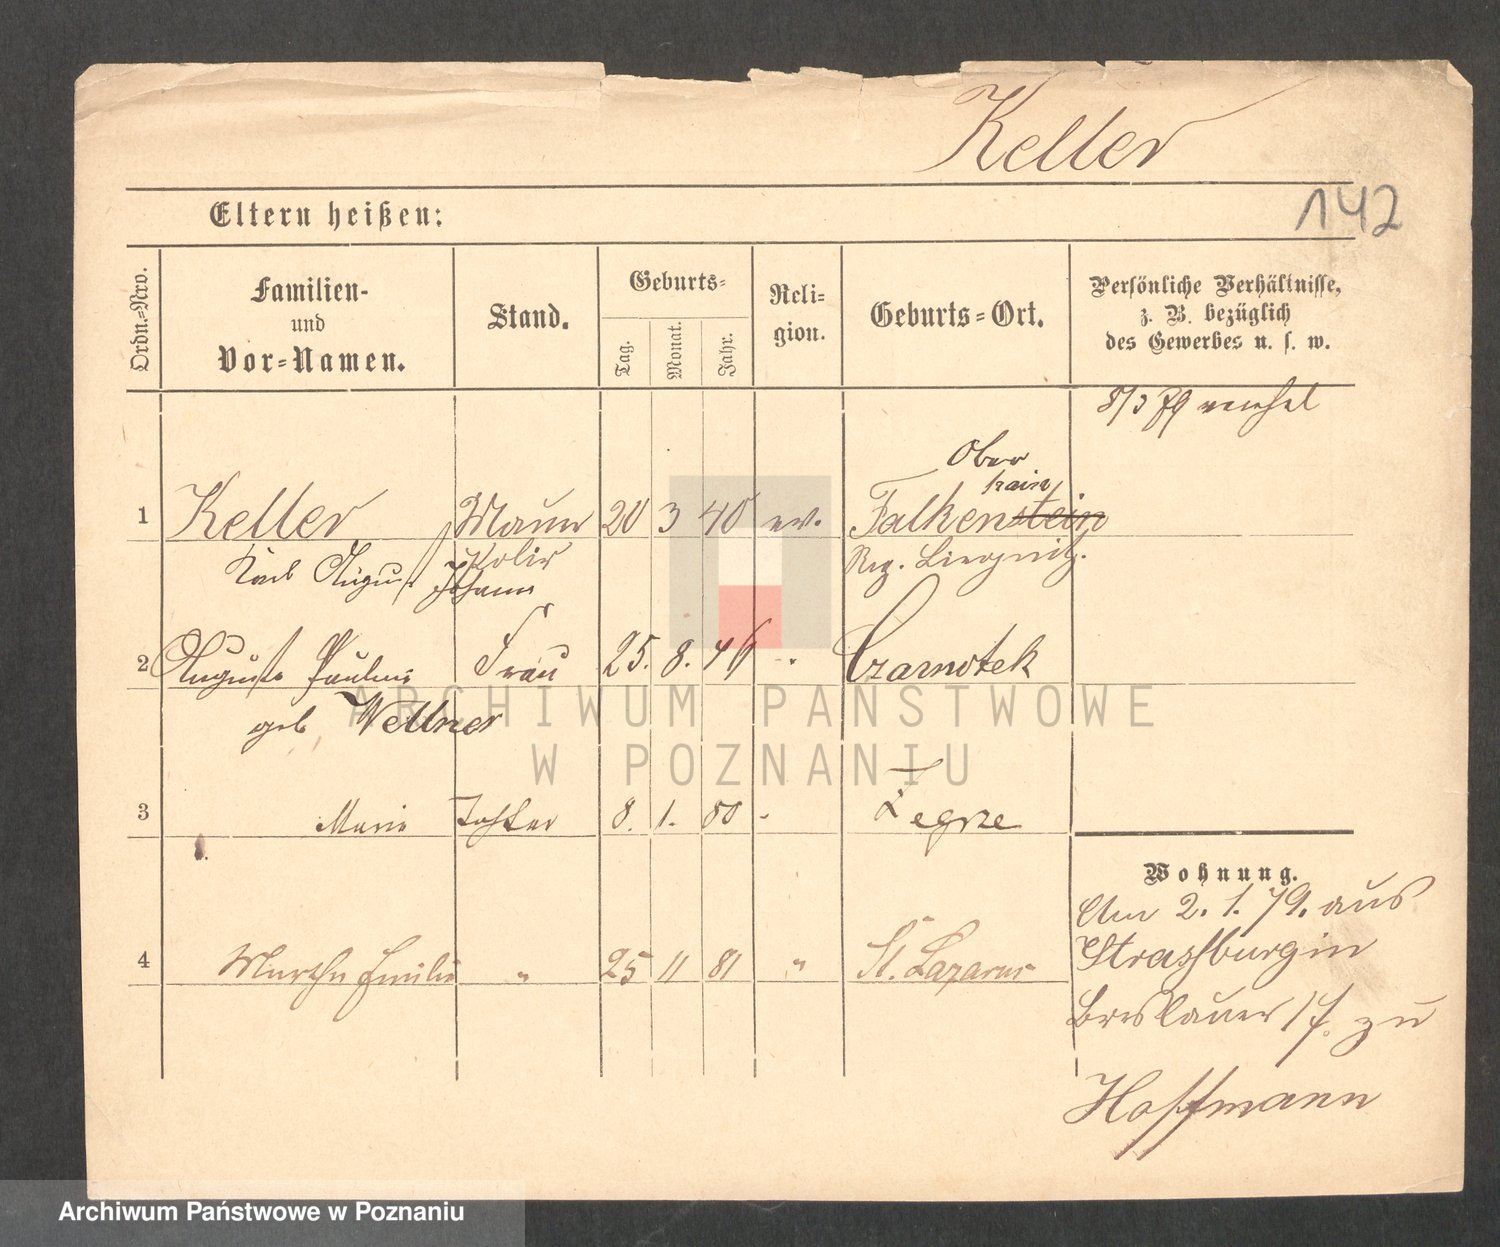 Keller
142
Eltern heißen:
Ordn.=Nro.
Familien-
und
Vor=Namen.
Stand.
Geburts=
Tag.
Monat.
Jahr.
Reli=
gion.
Geburts=Ort.
Persönliche Verhältnisse,
z. B. bezüglich
des Gewerbes u. s. w.
Ober
hain
1 Keller Mann 20 3 40 ev. Falkenstein
Karl August Johann Polir Reg. Liegnitz.
2 Auguste Pauline Frau 25. 8. 46 " Czarnotek
geb Wellner
3 Marie Tochter 8. 1. 80 - Zegrze
4 Martha Emilie " 25 11 81 " St. Lazarus
Wohnung.
Am 2. 1. 79. aus
Strassburg in
Breslauer 17. zu
Hoffmann
ARCHIWUM PAŃSTWOWE
W POZNANIU
Archiwum Państwowe w Poznaniu